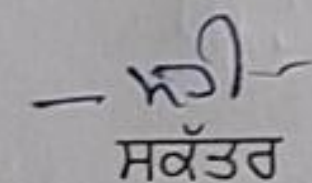 - ਸਹੀ -
ਸਕੱਤਰ